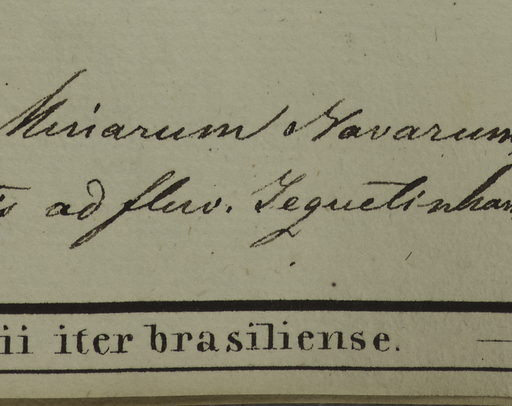 Miniarum Navarum
ad fluv. Jequetinhan
ii iter brasiliense.